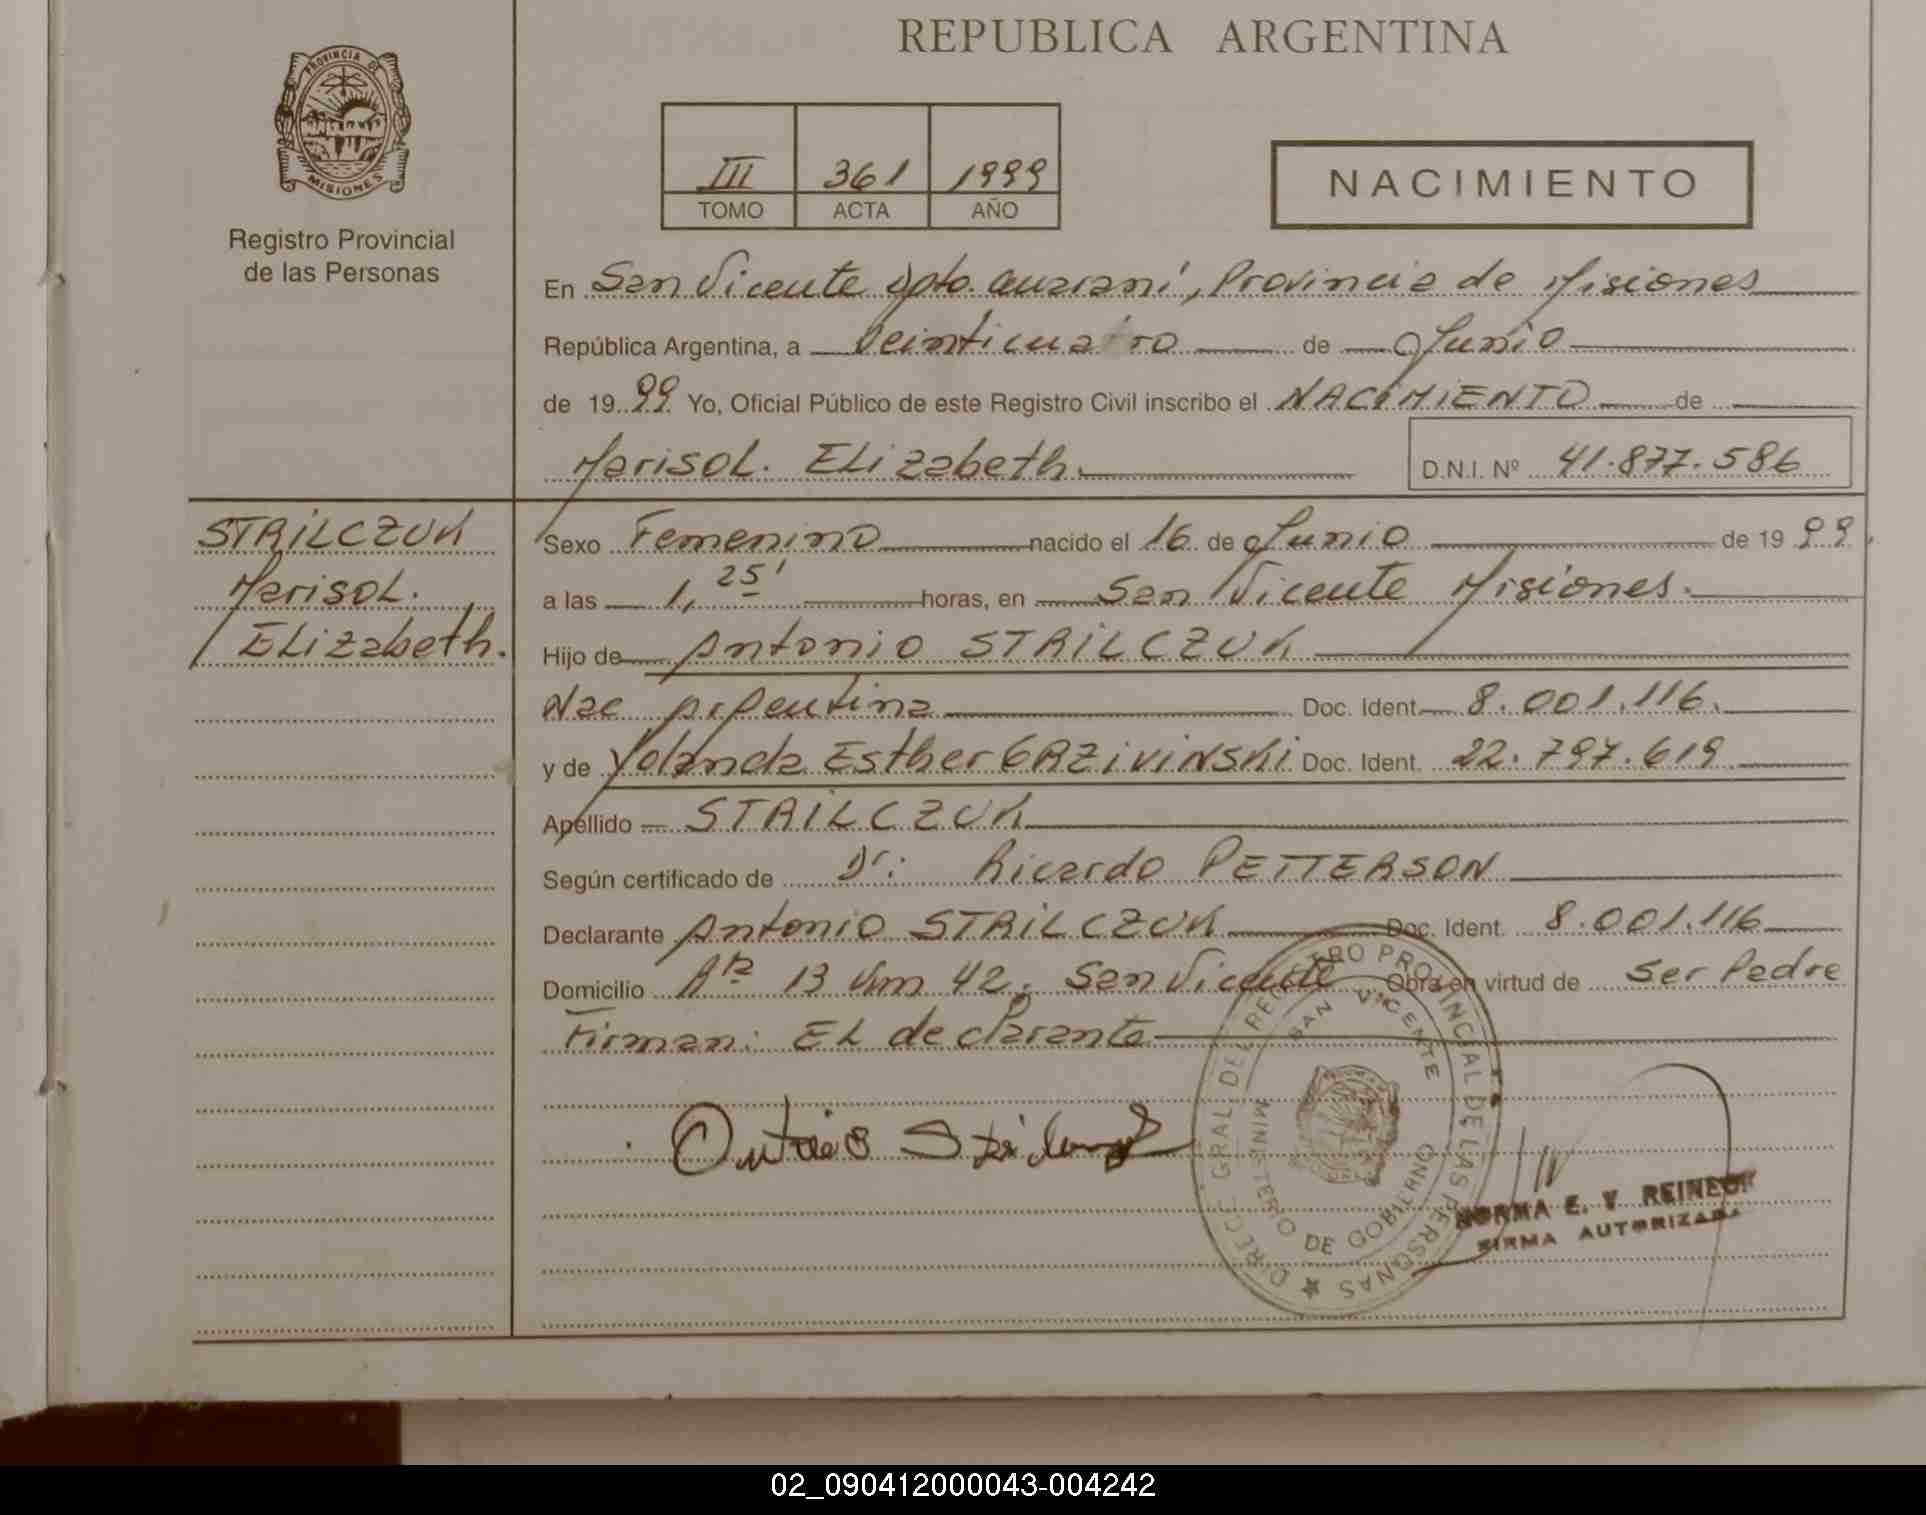 REPUBLICA ARGENTINA
PROVINCIA DE
MISIONES
Registro Provincial
de las Personas
III 361 1999
TOMO ACTA AÑO
NACIMIENTO
En San Vicente Dpto. Guaraní, Provincia de Misiones
República Argentina, a Veinticuatro de Junio
de 1999 Yo, Oficial Público de este Registro Civil inscribo el NACIMIENTO de
Marisol. Elizabeth. D.N.I. Nº 41.877.586
STRILCZUK
Marisol.
Elizabeth.
Sexo Femenino nacido el 16 de Junio de 1999.
a las 1,25' horas, en San Vicente Misiones.
Hijo de Antonio STRILCZUK
Nac Argentina Doc. Ident. 8.001.116.
y de Yolanda Esther GRZIVINSKI Doc. Ident. 22.797.619
Apellido STRILCZUK
Según certificado de Dr: Ricardo PETTERSON
Declarante Antonio STRILCZUK Doc. Ident. 8.001.116
Domicilio Rta 13 Km 42. San Vicente Obra en virtud de Ser Padre
Firman: El declarante
DIRECC. GRAL DEL REGISTRO PROVINCIAL DE LAS PERSONAS
SAN VICENTE
MINISTERIO DE GOBIERNO
NORMA E. V. REINECK
FIRMA AUTORIZADA
02_090412000043-004242